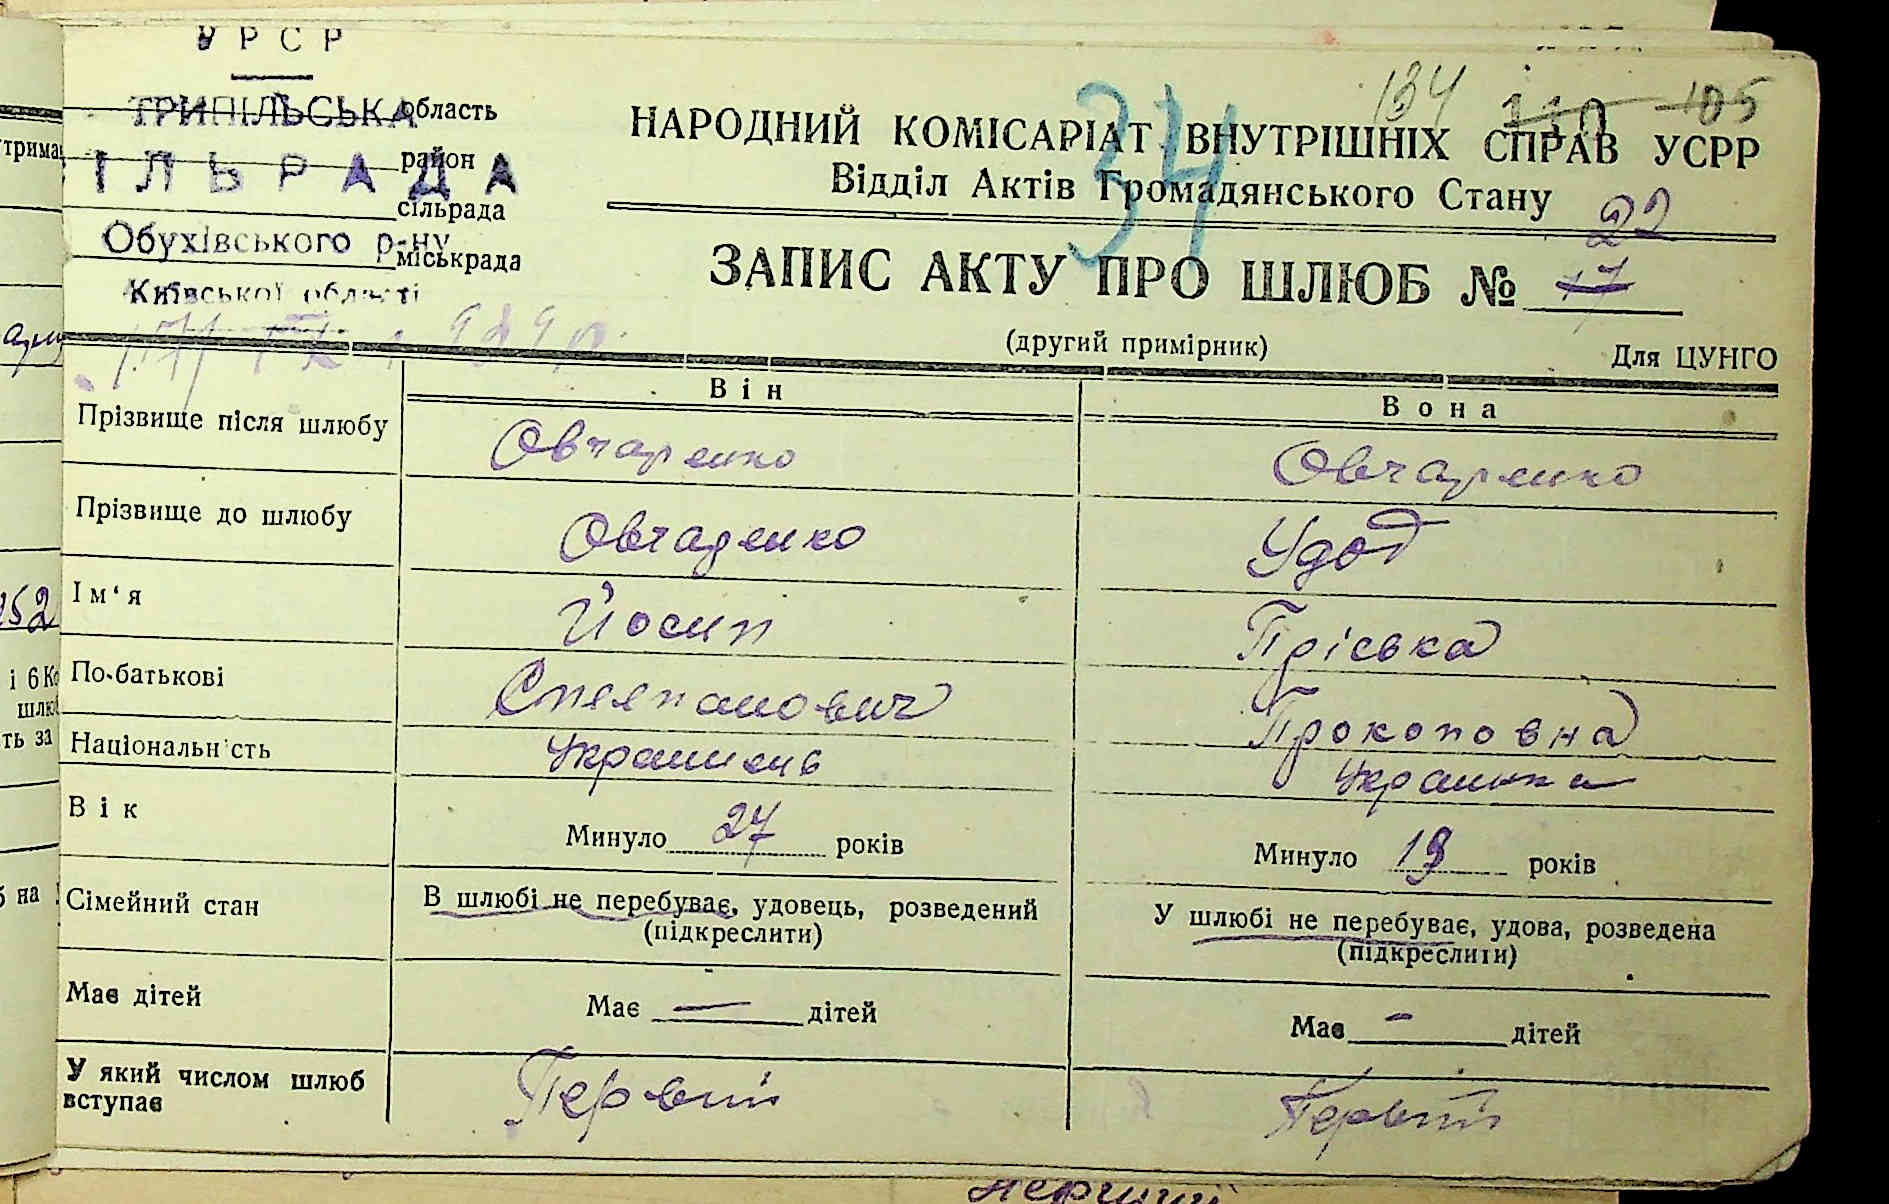 УРСР
ТРИПІЛЬСЬКА область
район
ІЛЬРАДА
сільрада
Обухівського р-ну
міськрада
Київської області
134 110 105
34
НАРОДНИЙ КОМІСАРІАТ ВНУТРІШНІХ СПРАВ УСРР
Відділ Актів Громадянського Стану
22
ЗАПИС АКТУ ПРО ШЛЮБ № 17
(другий примірник) Для ЦУНГО
Він Вона
Прізвище після шлюбу Овчаренко Овчаренко
Прізвище до шлюбу Овчаренко Удод
Ім'я Йосип Пріська
По-батькові Степанович Прокоповна
Національність Украинець Украинка
Вік Минуло 27 років Минуло 19 років
Сімейний стан В шлюбі не перебуває, удовець, розведений У шлюбі не перебуває, удова, розведена
(підкреслити) (підкреслити)
Має дітей Має — дітей Має - дітей
У який числом шлюб Первий Первий
вступає
252
і 6 Ко
шлю
ть за
б на